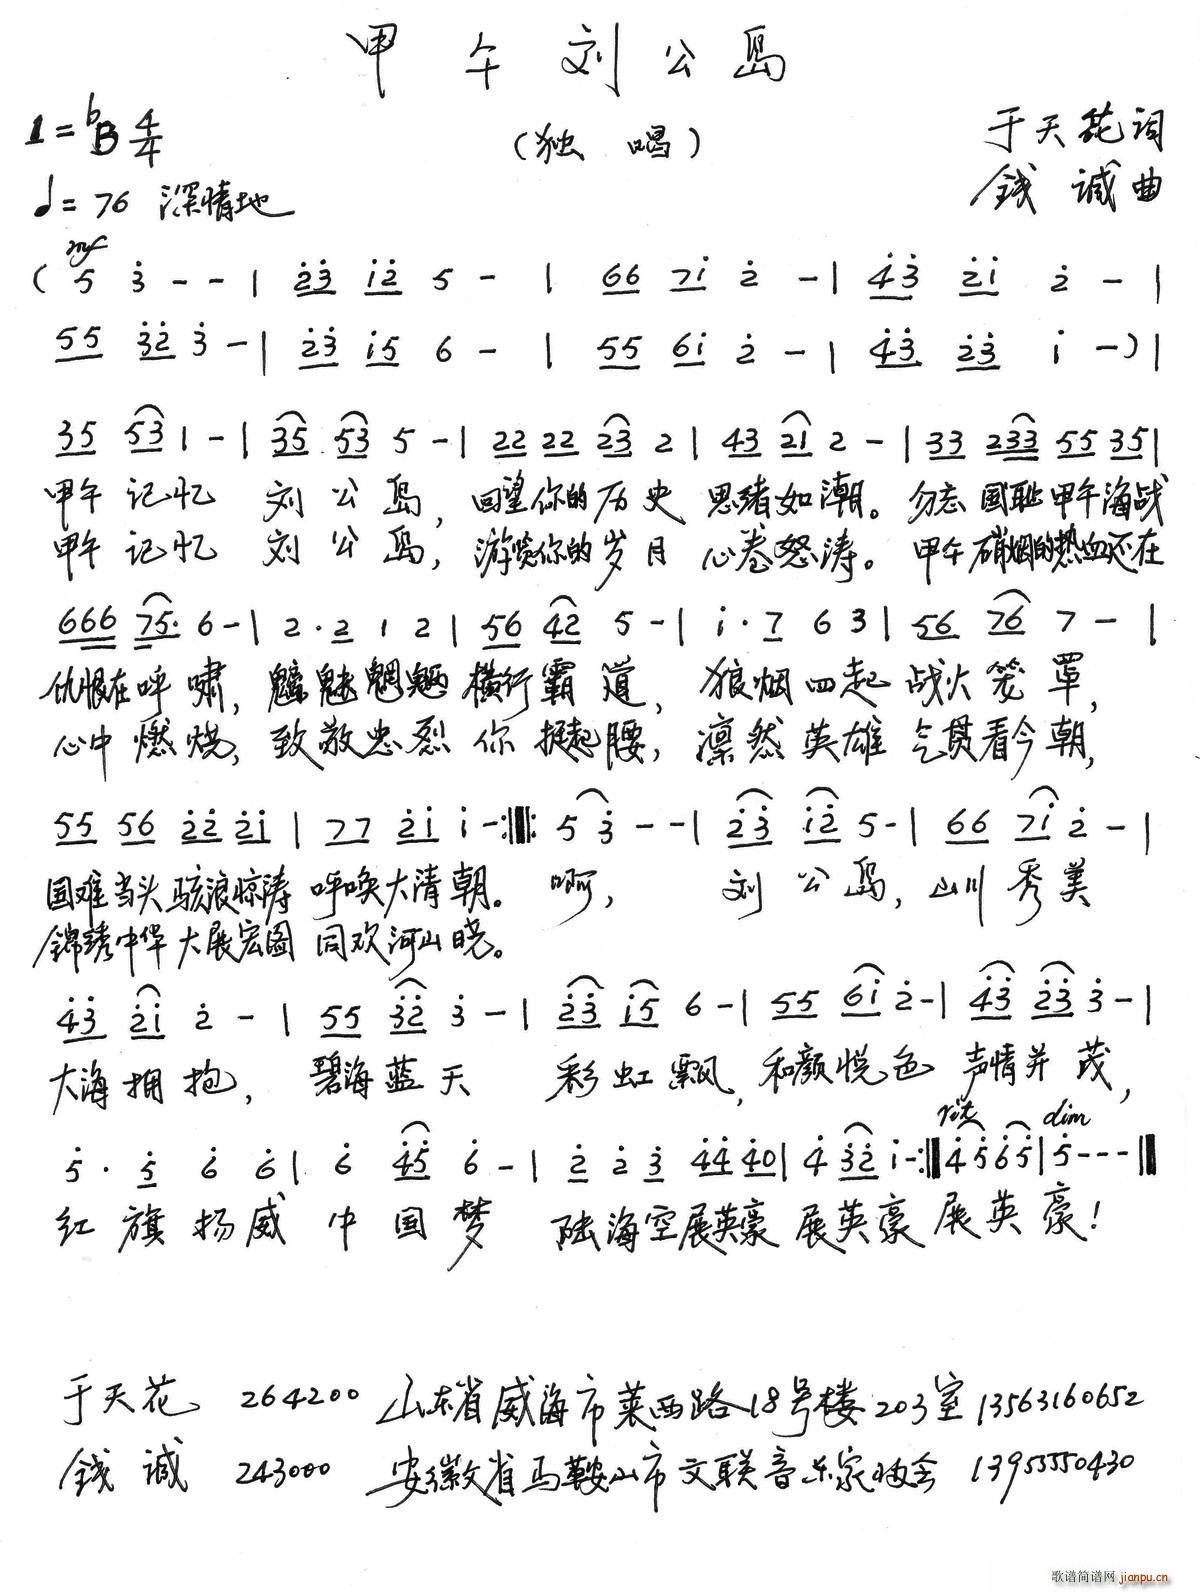 甲午刘公岛
1=bB 4/4
(独 唱)
于天花词
♩=76 深情地
钱 诚曲
mf
( 5 3̇ - - | 2̇3̇ 1̇2̇ 5 - | 66 71̇ 2̇ - | 4̇3̇ 2̇1̇ 2̇ - |
55 3̇2̇ 3̇ - | 2̇3̇ 1̇5 6 - | 55 61̇ 2̇ - | 4̇3̇ 2̇3̇ 1̇ - ) |
35 53 1 - | 35 53 5 - | 22 22 23 2 | 43 21 2 - | 33 233 55 35 |
甲午 记忆 刘 公 岛, 回望你的 历 史 思绪如潮。 勿忘 国耻 甲午海战
甲午 记忆 刘 公 岛, 游览你的 岁 月 心卷怒涛。 甲午 硝烟的热血还在
666 75· 6 - | 2 · 2 1 2 | 56 42 5 - | 1̇ · 7 6 3 | 56 76 7 - |
仇恨在呼 啸, 魑魅魍魉 横行霸 道, 狼烟四起 战火笼 罩,
心中 燃 烧, 致敬忠烈 你 挺起腰, 凛然英雄 气贯看今朝,
55 56 2̇2̇ 2̇1̇ | 77 2̇1̇ 1̇ - :‖: 5 3̇ - - | 2̇3̇ 1̇2̇ 5 - | 66 71̇ 2̇ - |
国难当头 骇浪惊涛 呼唤大清朝。 啊, 刘 公 岛, 山川 秀 美
锦绣中华 大展宏图 同欢河山晓。
4̇3̇ 2̇1̇ 2̇ - | 55 3̇2̇ 3̇ - | 2̇3̇ 1̇5 6 - | 55 61̇ 2̇ - | 4̇3̇ 2̇3̇ 3̇ - |
大海 拥 抱, 碧海 蓝 天 彩 虹 飘, 和颜 悦 色 声情 并 茂,
rit dim
5̇ · 5̇ 6̇ 6̇ | 6̇ 4̇5̇ 6̇ - | 2̇ 2̇ 3̇ 4̇4̇ 4̇0 | 4̇ 3̇2̇ 1̇ - :‖ 4̇5̇6̇5̇ | 5̇ - - - ‖
红 旗 扬 威 中 国 梦 陆海空展英豪 展英豪 展 英 豪!
于天花 264200 山东省威海市莱西路18号楼203室 13563160652
钱 诚 243000 安徽省马鞍山市文联音乐家协会 13955550430
歌谱简谱网
jianpu.cn